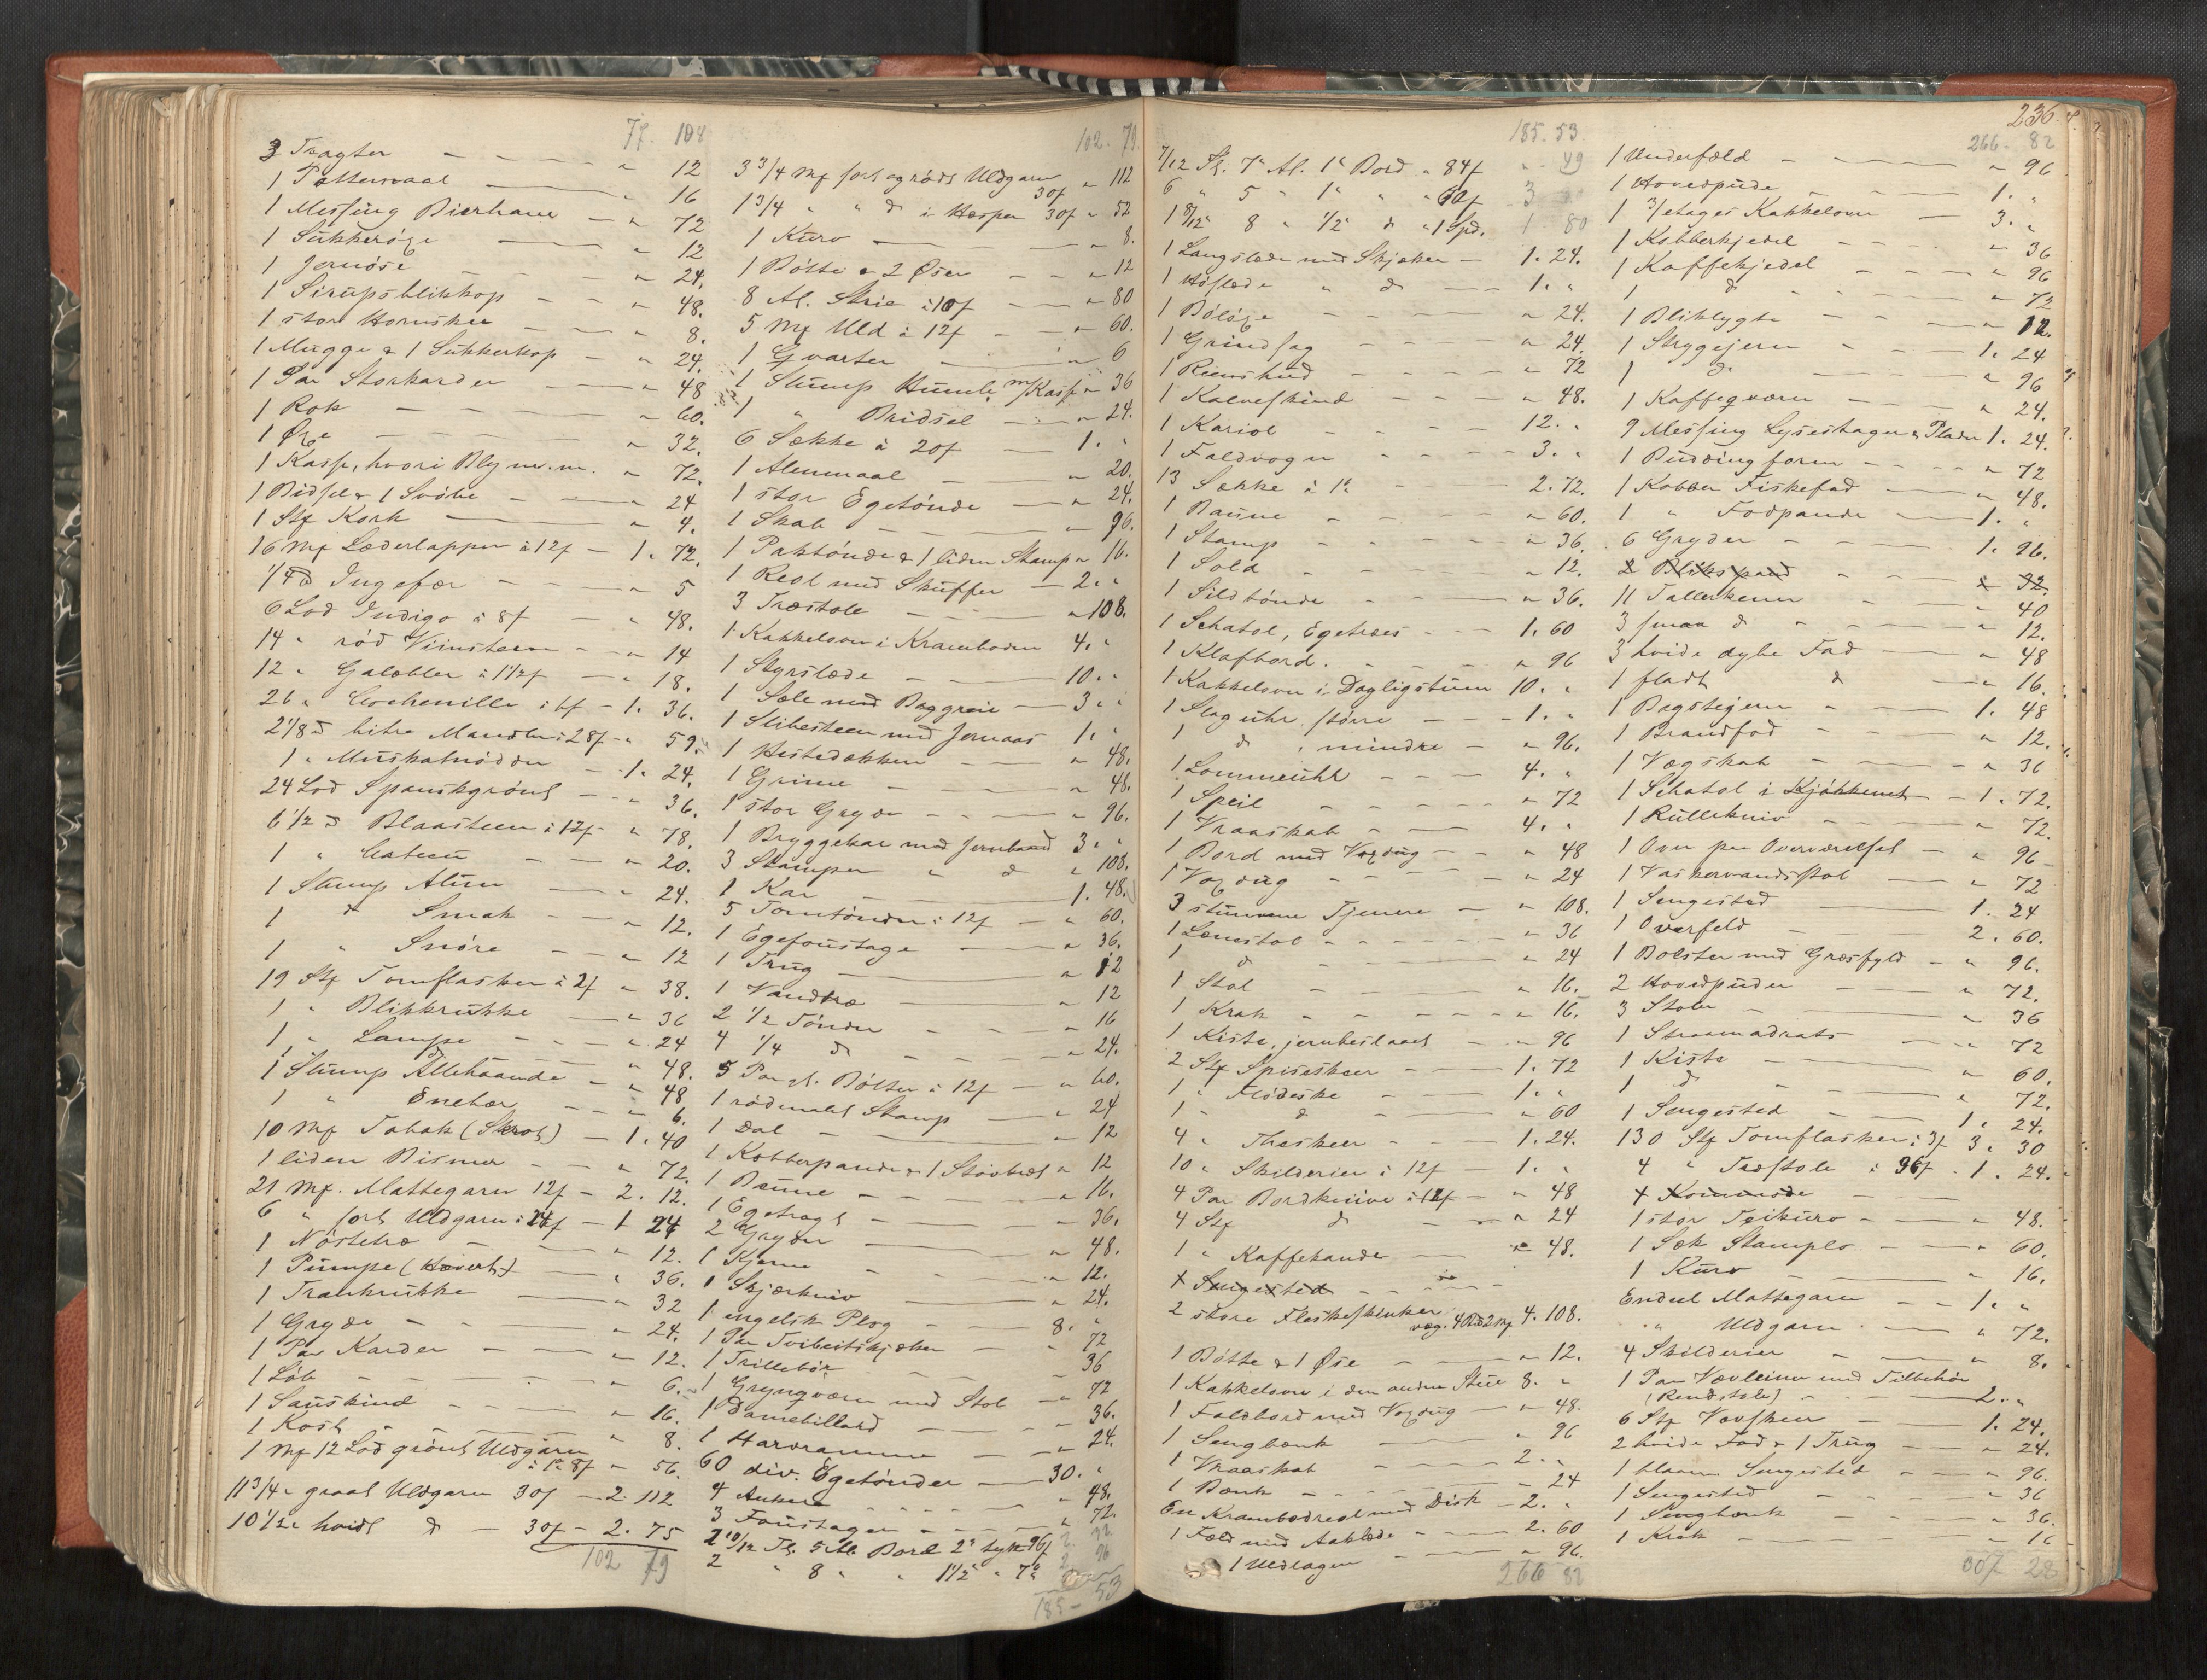 77. 108
3 Tragter - - - " 12
1 Pottemaal — " 16
1 Messing Bierhane — " 72
1 Sukkerøxe — " 12
1 Jernøse - - - " 24.
1 Sirupsblikkop - - " 48.
1 stor Hornskee - - " 8.
1 Mugge & 1 Sukkerkop - " 24.
1 Par Storkarder — " 48
1 Rok - - - " 60.
1 Øxe - - - " 32.
1 Kasse, hvori Bly m.m. " 72.
1 Bidsel & 1 Svøbe - " 24
1 Stk Kork — " 4.
16 Mk Læderlapper à 12f - 1. 72.
1/4 ℔ Ingefær - - " 5
6 Lod Indigo à 8f - " 48.
14 " rød Viinsteen - - " 14
12 " Galæbler à 1 1/2f - " 18.
26 " Cochenille à 6f - 1. 36.
2 1/8 ℔ bitre Mandler à 28f - " 59.
1 " Muskatnødder - 1. 24.
24 Lod Spanskgrønt - - " 36.
6 1/2 ℔ Blaasteen à 12f - " 78.
1 " Catecu - - " 20.
1 Stump Alun — " 24.
1 d Smak - - " 12.
1 " Snøre - - " 12
19 Stk Tomflasker à 2f " 38.
1 " Blikkrukke — " 36
1 " Lampe - - " 24
1 " d - - " 48.
1 Stump Allehaande - " 48
1 " Enebær - - " 6.
10 Mk Tobak (Skraa) - 1. 40
1 liden Bismer - - " 72.
21 Mk. Mattegarn 12f - 2. 12.
6 " sort Uldgarn à 24f - 1 24
1 Nøstetræ - - " 12.
1 Pumpe (Hævert) - " 36.
1 Trankrukke — " 32
1 Gryde - - - " 24.
1 Par Karder - - " 12.
1 Løb - - - " 6.
1 Sauskind - - " 16.
1 Kost - - - " 8.
1 Mk 12 Lod grønt Uldgarn
à 1 8f " 56.
11 3/4 " graat Uldgarn 30f - 2. 112.
10 1/2 " hvidt d - 30f - 2. 75
102 79
102. 79.
3 3/4 Mk sort og rødt Uldgarn
30f " 112
1 3/4 " " d i Hesper 30f " 52
1 Kurv — " 8.
1 Bøtte & 2 Øser - - " 12
8 Al. Strie à 10f — " 80
5 Mk Uld à 12f - " 60.
1 Qvarter - - " 6
1 Stump Humle m/Kasse " 36
1 " Bridsel - - " 24.
6 Sække à 20f - 1. "
1 Alenmaal - " 20.
1 stor Egetønde — " 24.
1 Skab - - " 96.
1 Paktønde & 1 liden Stamp " 16.
1 Reol med Skuffer — 2. "
3 Træstole - - " 108.
1 Kakkelovn i Kramboden 4. "
1 Styrslæde — 10. "
1 Sæle med Baggreie — 3. "
1 Slibesteen med Jernaas 1. "
1 Hestedækken — " 48.
1 Grime - - " 48.
1 stor Gryde - - " 96.
1 Bryggekar med Jernbaand 3. "
3 Stamper " d " 108.
1 Kar — 1. 48.
5 Tomtønder à 12f - " 60.
1 Egefoustage — " 36.
1 Trug — " 12
1 Vandtræ — " 12
2 1/2 Tønder - - " 16
4 1/4 d - - " 24.
5 Par gl. Bøtter à 12f - " 60.
1 rødmalet Stamp — " 24
1 Dal - — " 12
1 Kobberpande & 1 Støvbræt " 12
1 Brune - - " 16.
1 Egetragt - " 36.
2 Gryder - — " 48.
1 Kjerne - - " 12.
1 Skjærkniv — " 24.
1 engelsk Plog - - 8. "
1 Par Tvibeitskjæker - " 72
1 Trillebør — 36
1 Grynqværn med Stol - " 72
1 Damebillard - - " 36.
1 Harvramme - - " 24.
60 div. Egetønder — 30. "
4 Ankere - - - " 48.
3 Foustager - - " 72.
2 10/12 Tl. 5 Al. Bord 2" tyk 96f 2. 32.
2 " 8 " " 1 1/2" " 7 96
185 - 53
185. 53
7/12 Tl. 7" Al. 1" Bord " 84f " 49
6 " 5 " 1" " " 60f 3 "
1 8/12 8 " 1/2" d " 1 Spd. 1 80
1 Langslæde med Skjæker - 1. 24.
1 Høslæde " d - 1. "
1 Bøløxe - - " 24.
1 Grindsag - - " 24.
1 Reenshud - - " 72
1 Kalveskind - - " 48.
1 Kariol - - 12. "
1 Faldvogn - - 3. "
13 Sække à 1 - - 2. 72.
1 Baune - - " 60.
1 Stamp - - " 36.
1 Sold - - " 12.
1 Sildtønde - - " 36.
1 Schatol, Egetræes - - 1. 60
1 Klafbord. - - " 96
1 Kakkelovn i Dagligstuen 10. "
1 Slaguhr, større - - 1. "
1 d , mindre - " 96.
1 Lommeuhr - - 4. "
1 Speil - - " 72
1 Vraaskab - - 4. "
1 Bord med Voxdug - - " 48
1 Voxdug - - " 24
3 stumme Tjenere - " 108.
1 Lænestol - - " 36
1 d - - " 24
1 Stol - - " 16.
1 Krak - - " 16.
1 Kiste, jernbeslaaet - " 96
2 Stk Spiseskeer - - 1. 72
1 " Flødeske - 1. "
1 " d - - " 60
4 " Theskeer - - 1. 24.
10 " Skilderier à 12f - 1. "
4 Par Bordknive à 12f - " 48
4 Stk d - - " 24
1 " Kaffekande — " 48.
1 Sengested - - -
2 store Fleskeskinker
væg. 40 ℔ 2 Mk 4. 108.
1 Bøtte & 1 Øse - - " 12.
1 Kakkelovn i den anden Stue 8. "
1 Faldbord med Voxdug - " 48.
1 Sengbænk — " 96
1 Vraaskab — 2. "
1 Bænk - - 24
En Krambodreol med Disk - 2. "
1 Fæld med Aaklæde - - 2. 60
1 Uldlagen - - " 96.
266 82
236.
266 - 82
1 Underfæld - - " 96
1 Hovedpude - - 1. "
1 3/etages Kakkelovn - 3. "
1 Kobberkjedel - - " 36
1 Kaffekjedel - - " 96
1 d - - " 72
1 Bliklygte - - " 12.
1 Strygejern - - 1. 24
1 d — " 96
1 Kaffeqværn - - " 24.
9 Messing Lysestager & Plader 1. 24.
1 Puddingform - - " 72
1 Kobber Fiskefad — " 48.
1 " Fodpande - 1. "
6 Gryder - - 1. 96.
2 Blikspand - - " 32.
11 Tallerkener - " 40
3 smaa d - - " 12.
3 hvide dybe Fad - " 48
1 fladt d - " 16.
1 Bagstejern - 1. 48
1 Brandfad - - " 12.
1 Vægskab - - " 36
1 Schatol i Kjøkkenet - 1. 72.
1 Rullekniv - - " 72.
1 Ovn paa Overværelset - " 96
1 Vaskevandsstol - " 72
1 Sengested — 1. 24
1 Overfeld - 2. 60.
1 Bolster med Græsfyld - " 96.
2 Hovedpuder — " 72.
3 Stole — " 36
1 Straamadrats - " 72
1 Kiste — " 60.
1 d - " 72.
1 Sengested — 1. 24.
130 Stk Tomflasker à 3f 3. 30
4 " Træstole à 36f - 1. 24.
1 Kommode —
1 stor Teikurv - — " 48.
1 Sæk Stamplo - - " 60.
1 Kurv - " 16.
Endeel Mattegarn - - 1. "
" Uldgarn - " 72.
4 Skilderier - - " 8.
1 Par Vævleiner med Tilbehør
(Rendstole) - - 2. "
6 Stk Vævskeer — 1. 24.
2 hvide Fad & 1 Trug - - " 24.
1 blaam. Sengested — " 96.
1 Sengested - - " 36
1 Sengbænk - - " 36.
1 Krak - - - " 16
307 28